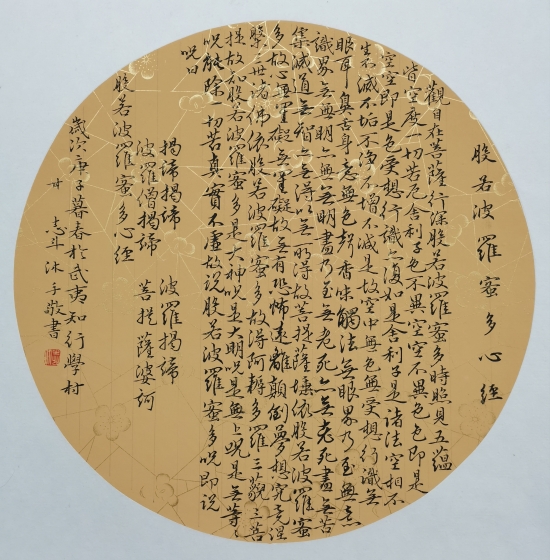 般若波羅蜜多心經
觀自在菩薩行深般若波羅蜜多時照見五蘊
皆空度一切苦厄舍利子色不異空空不異色色即是
空空即是色受想行識亦復如是舍利子是諸法空相不
生不滅不垢不淨不增不減是故空中無色無受想行識無
眼耳鼻舌身意無色聲香味觸法無眼界乃至無意
識界無無明亦無無明盡乃至無老死亦無老死盡無苦
集滅道無智亦無得以無所得故菩提薩埵依般若波羅蜜
多故心無罣礙無罣礙故無有恐怖遠離顛倒夢想究竟涅
槃三世諸佛依般若波羅蜜多故得阿耨多羅三藐三菩
提故知般若波羅蜜多是大神咒是大明咒是無上咒是無等等
咒能除一切苦真實不虛故說般若波羅蜜多咒即說
咒曰
揭諦揭諦 波羅揭諦
波羅僧揭諦 菩提薩婆訶
般若波羅蜜多心經
歲次庚子暮春於武夷知行學村
志斗沐手敬書